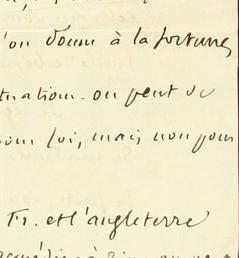 l'on donne à la fortune,
tration. on peut se
pour soi, mais non pour
Fr. et l'angleterre